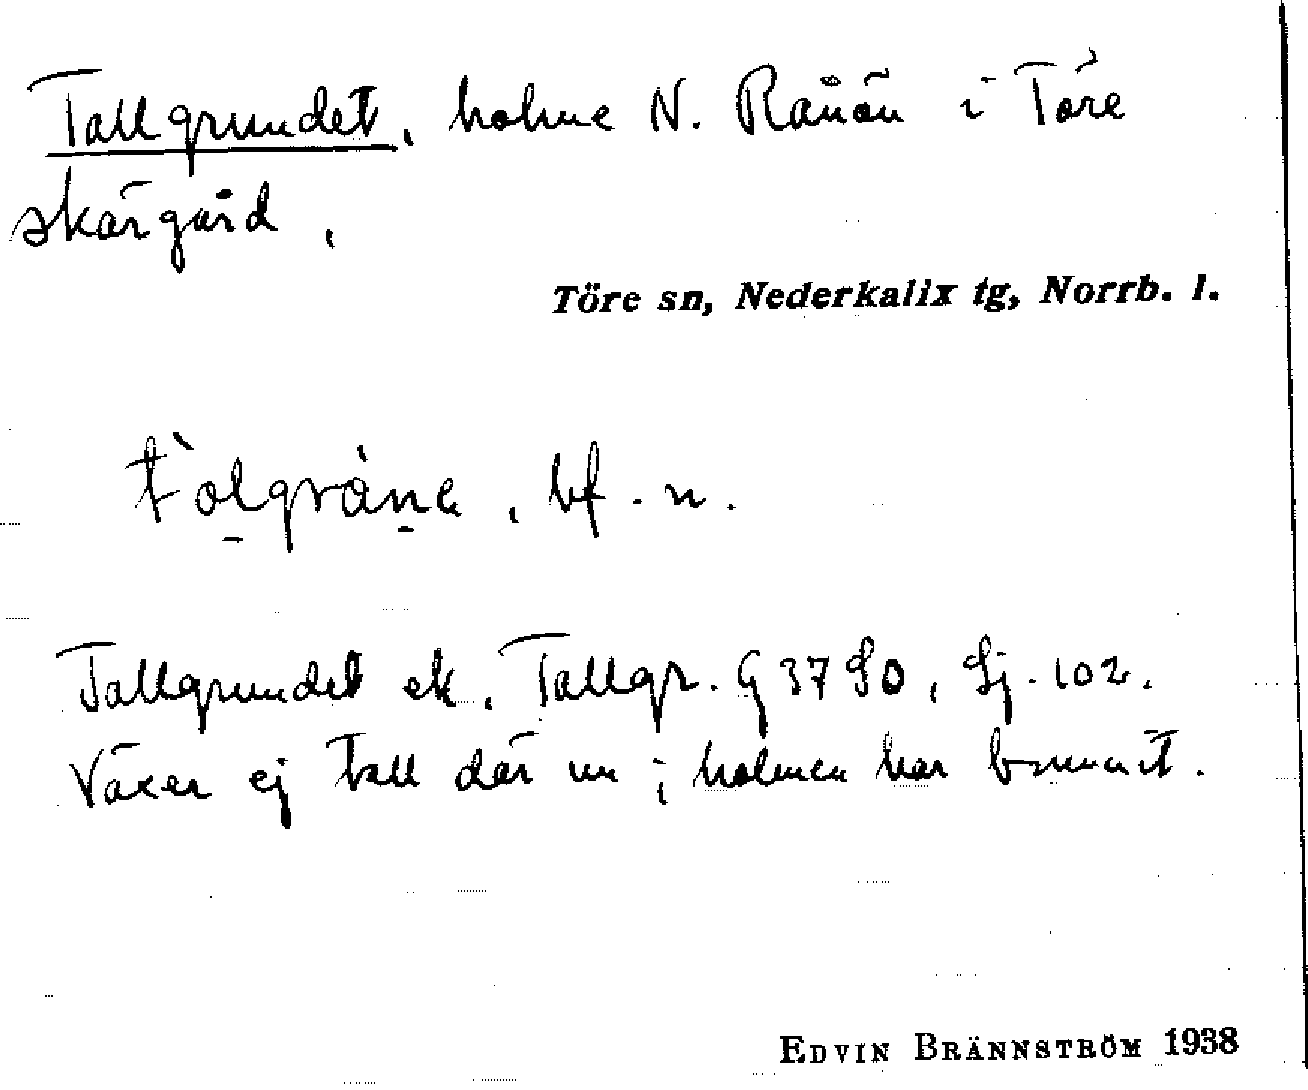 Tallgrundet, holme N. Rånön i Töre
skärgård.
Töre sn, Nederkalix tg, Norrb. l.
bf. n.
Tallgrundet ek. Tallgr. G 37 SO, Sj. 102.
Växer ej tall där nu; holmen har brunnit.
EDVIN BRÄNNSTRÖM 1938